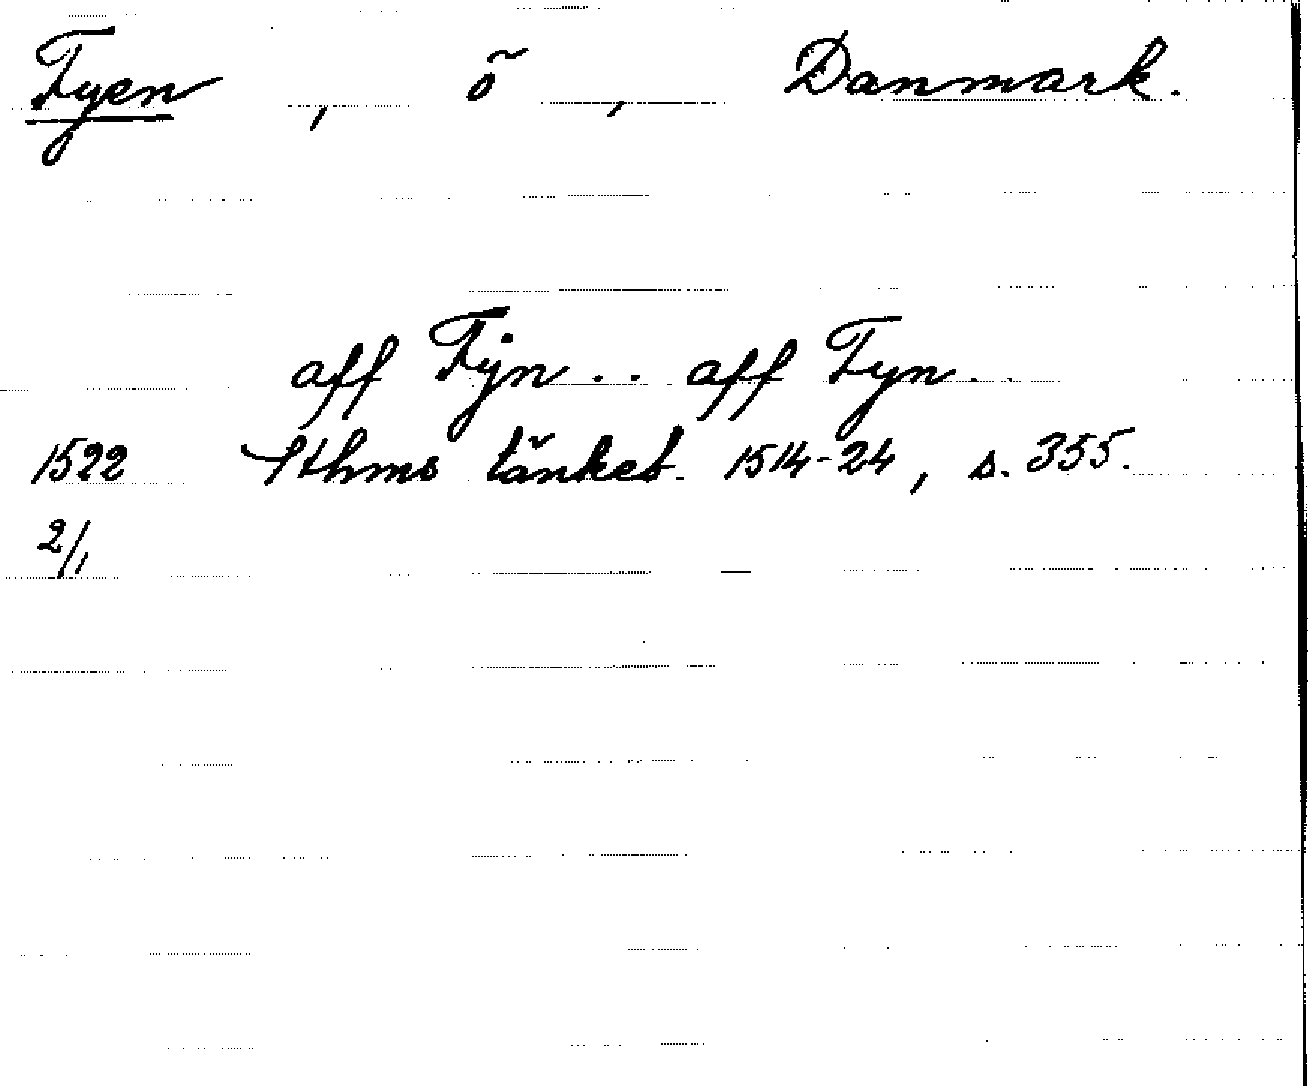 Fyen , ö , Danmark.
aff Fÿn . . aff Fyn .
1522 Sthms tänkeb. 1514-24 , s. 355.
2/1